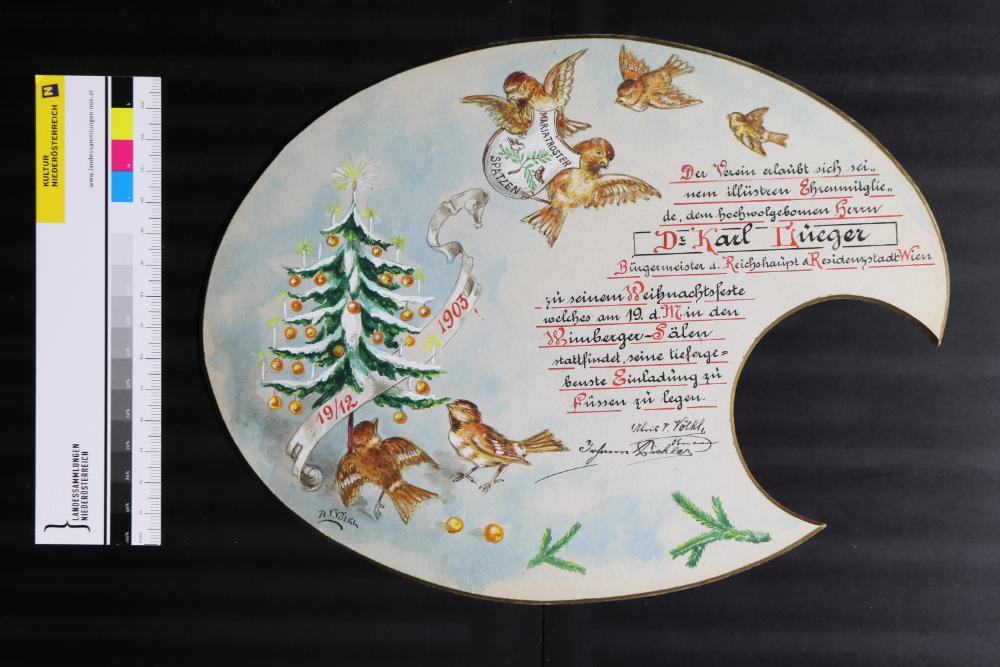 KULTUR
NIEDERÖSTERREICH
www.landessammlungen-noe.at
LANDESSAMMLUNGEN
NIEDERÖSTERREICH
MARIATROSTER
SPATZEN
Der Verein erlaubt sich sei„
nem illüstren Ehrenmitglie„
de, dem hochwolgebornen Herrn
Dr. Karl Lüeger
Bürgermeister d. Reichshaüpt & Residenzstadt Wien
zü seinem Weihnachtsfeste
welches am 19. d. M in den
Wimberger-Sälen
stattfindet, seine tieferge=
benste Einladüng zü
Füssen zü legen.
1903
19/12
Völkl,
Johann Pichler
A. F. VÖLKL